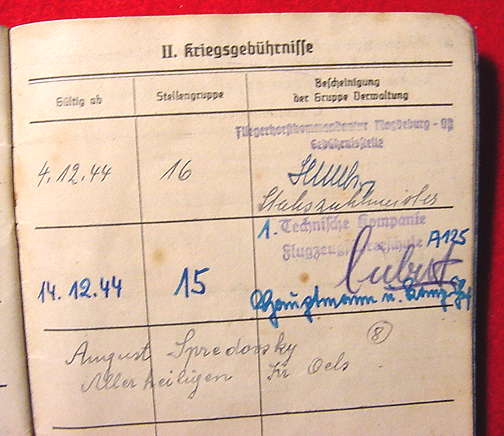 II. Kriegsgebührnisse
Gültig ab
Stellengruppe
Bescheinigung
der Gruppe Verwaltung
4.12.44
16
Fliegerhorstkommandantur Magdeburg - 
Gebührnisstelle
Stabszahlmeister
14.12.44
15
1. Technische Kompanie
A125
Hauptmann u. Komp.
August Spredovsky
8
Allerheiligen Kr Oels